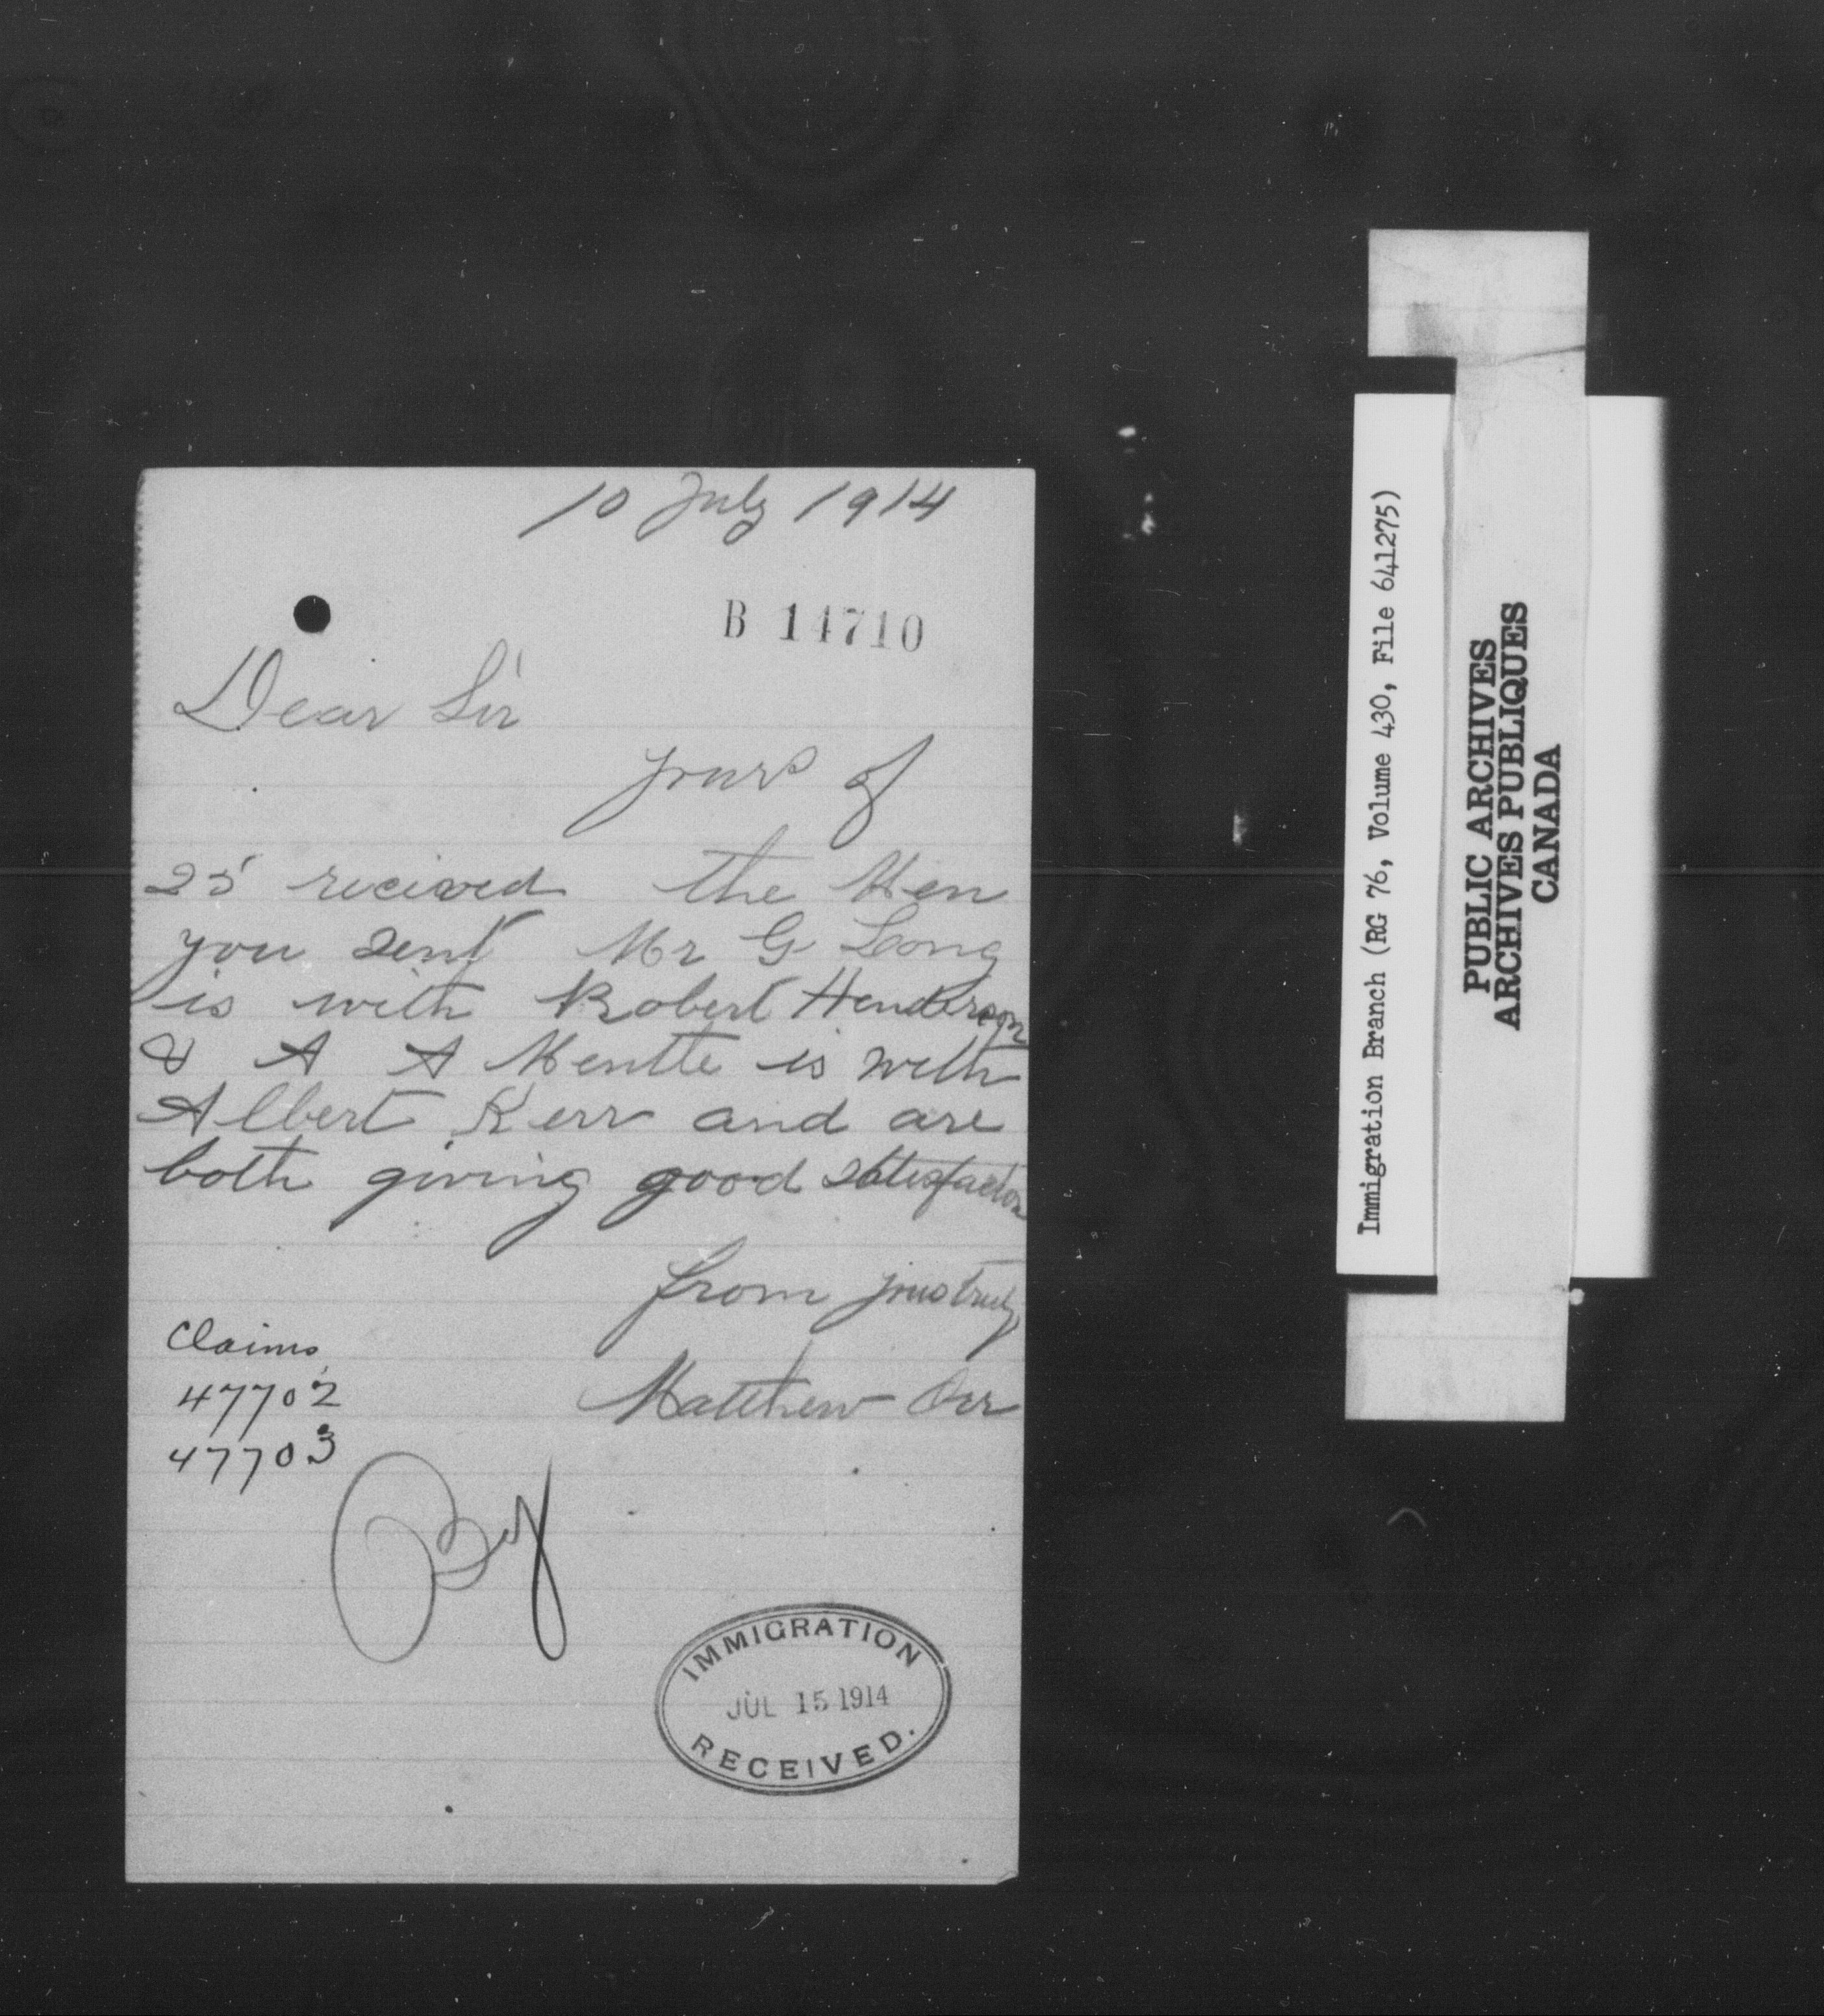 10 July 1914
B 14710
Dear Sir
yours of
25 recieved the Men
you sent Mr G Long
is with Robert Henderson
& A A Mentle is with
Albert Kerr and are
both giving good satisfaction
from yours truly
Matthew Orr
Claims
47702
47703
IMMIGRATION
JUL 15 1914
RECEIVED.
Immigration Branch (RG 76, Volume 430, File 641275)
PUBLIC ARCHIVES
ARCHIVES PUBLIQUES
CANADA